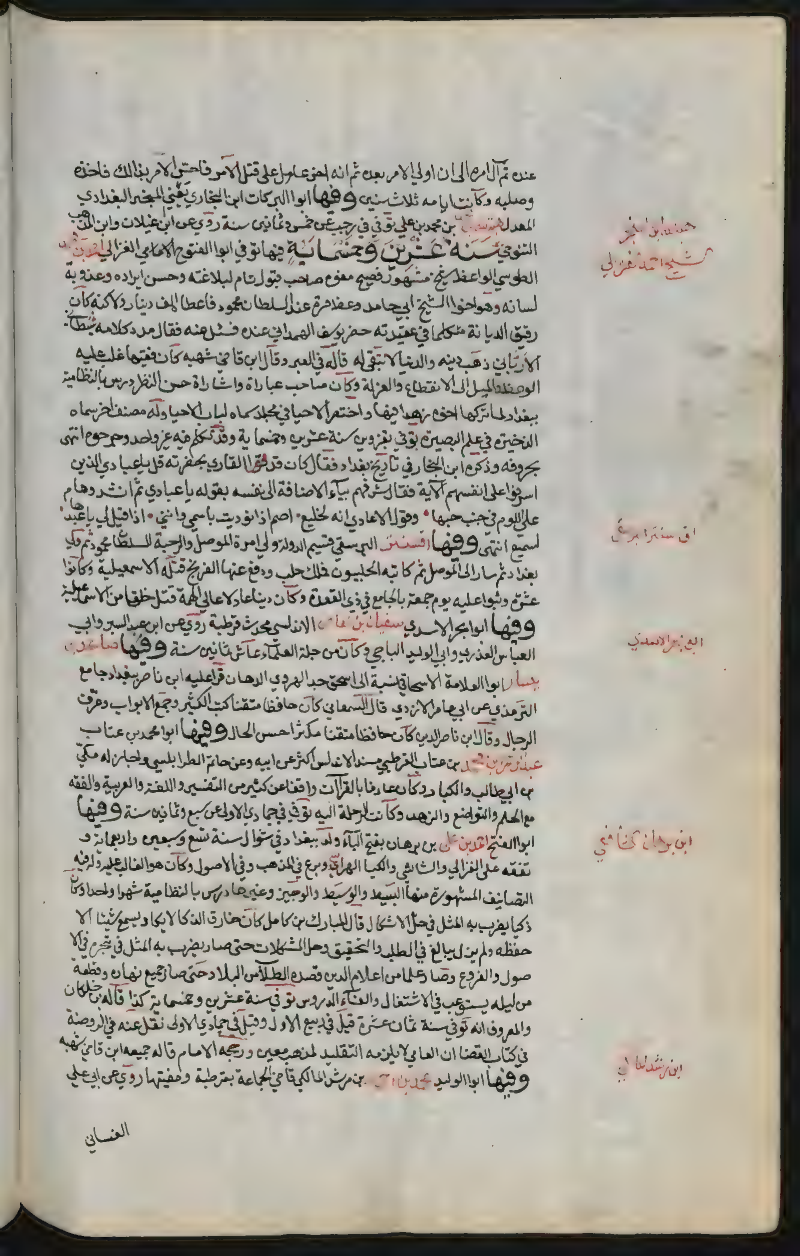 عنده ثم آل امره الى ان اولي الامر بعده ثم انه لحق عامل على قتل الآمر فاحتس الآمر بذالك فاخذه
وصلبه وكانت ايامه ثلاث سنين وفيها ابوا البركات ابن البخاري يعني المبخر البغدادي
المعدل هبة الله بن محمد بن علي توفي في رجب عن خمس وثمانين سنة روى عن ابن غيلان وابن المذهب
التنوخي سنة عشرين وخمسماية فيها توفي ابوا الفتوح الامامي الغزالي احمد بن محمد
الطوسي الواعظ شيخ مشهور فصيح مفوه صاحب قبول تام لبلاغته وحسن ايراده وعذوبة
لسانه وهو اخوا الشيخ ابي حامد وعظ مرة عند السلطان محمود فاعطاه الف دينار ولاكنه كان
رقيق الديانة متكلما في عقيدته حضر يوسف الهمداني عنده فسئل عنه فقال مدد كلامه شيطاني
لا رباني ذهب دينه والدنيا لا تبقى له قاله في العبر وقال ابن قاضي شهبة كان فقيها غلب عليه
الوعظ والميل الى الانقطاع والعزلة وكان صاحب عبارات واشارات حسن النظر درس بالنظامية
ببغداد لما تركها اخوه زهدا فيها واختصر الاحيا في مجلد سماه لباب الاحيا وله مصنف اخر سماه
الذخيرة في علم البصيرة توفي بقزوين سنة عشرين وخمسماية وقد تكلم فيه غير واحد وجرحوه انتهى
بحروفه وذكره ابن النجار في تاريخ بغداد فقال كان قد قرا القاري بحضرته قل يا عبادي الذين
اسرفوا على انفسهم الآية فقال شرفهم بياء الاضافة الى نفسه بقوله يا عبادي ثم انشد وهام
على اللوم في جنب حبها وقول الاعادي انه لخليع اصم اذا نوديت باسمي وانني اذا قيل لي يا عبدها
لسميع انتهى وفيها اقسنقر البرسقي قسيم الدولة ولي امرة الموصل والرحبة للسلطان محمود ثم ولي
بغداد ثم سار الى الموصل ثم كاتبه الحلبيون فملك حلب ودفع عنها الفرنج قتله الاسمعيلية وكانوا
عشرة وثبوا عليه يوم جمعة بالجامع في ذي القعدة وكان دينا عادلا عالي الهمة قتل خلقا من الاسماعيلية
وفيها ابوا بحر الاسدي سفيان بن العاص الاندلسي محدث قرطبة روى عن ابن عبد البر وابي
العباس العذري وابي الوليد الباجي وكان من جلة العلماء عاش ثمانين سنة وفيها صاعد بن
سيار ابوا العلا الاسحاقي نسبة الى اسحق جد الهروي الدهان قرا عليه ابن ناصر ببغداد جامع
الترمذي عن ابي عامر الازدي قال السمعاني كان حافظا متقنا كتب الكثير وجمع الابواب وعرف
الرجال وقال ابن ناصر الدين كان حافظا متقنا مكثرا حسن الحال وفيها ابوا محمد بن عتاب
عبد الرحمن بن محمد بن عتاب القرطبي مسند الاندلس اكثر عن ابيه وعن حاتم الطرابلسي واجاز له مكي
بن ابي طالب والكبار وكان عارفا بالقراات واقفا عن كثير من التفسير واللغة والعربية والفقه
مع الحلم والتواضع والزهد وكانت الرحلة اليه توفي في جمادي الاولى عن سبع وثمانين سنة وفيها
ابوا الفتح احمد بن علي بن برهان بفتح الباء ولد ببغداد في شوال سنة تسع وسبعين واربعماية و
تفقه على الغزالي والشاشي والكيا الهراسي وبرع في المذهب وفي الاصول وكان هو الغالب عليه وله فيه
التصانيف المشهورة منها البسيط والوسيط والوجيز وغيرها درس بالنظامية شهرا واحدا وكان
ذكيا يضرب به المثل في حل الاشكال قال المبارك بن كامل كان خارق الذكا لا يكاد يسمع شيئا الا
حفظه ولم يزل يبالغ في الطلب والتحقيق وحل المشكلات حتى صار يضرب به المثل في تبحره في الا
صول والفروع وصار علما من اعلام الدين قصده الطلاب من البلاد حتى صار جميع نهاره وقطعة
من ليله يستوعب في الاشتغال والقاء الدروس توفي سنة عشرين وخمسماية كذا قاله ابن خلكان
والمعروف انه توفي سنة ثمان عشرة قيل في ربيع الاول وقيل في جمادي الاولى نقل عنه في الروضة
في كتاب القضا ان العامي لا يلزمه التقليد لمذهب معين ورجحه الامام قاله جميعه ابن قاضي شهبة
وفيها ابوا الوليد محمد بن احمد بن رشد المالكي قاضي الجماعة بقرطبة ومفتيها روى عن ابي علي
الغساني
الشيخ احمد الغزالي
اق سنقر البرسقي
ابو بحر الاسدي
ابن برهان الشافعي
ابن رشد المالكي